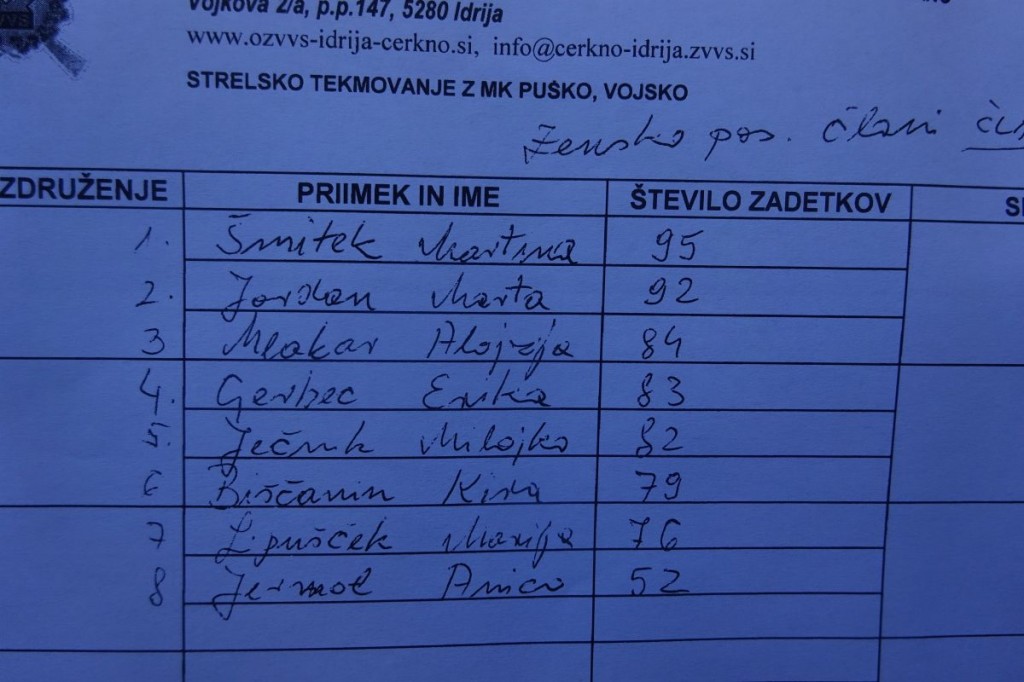 Vojkova 2/a, p.p.147, 5280 Idrija
www.ozvvs-idrija-cerkno.si, info@cerkno-idrija.zvvs.si
STRELSKO TEKMOVANJE Z MK PUŠKO, VOJSKO
Žensko pos. člani
ZDRUŽENJE PRIIMEK IN IME ŠTEVILO ZADETKOV
1. Šmitek Martina 95
2. Jordan Marta 92
3 Mlakar Alojzija 84
4. Gerbec Erika 83
5. Ječnik Milojko 82
6 Biščanin Kira 79
7 Lipušček Marija 76
8 Jermol Anica 52